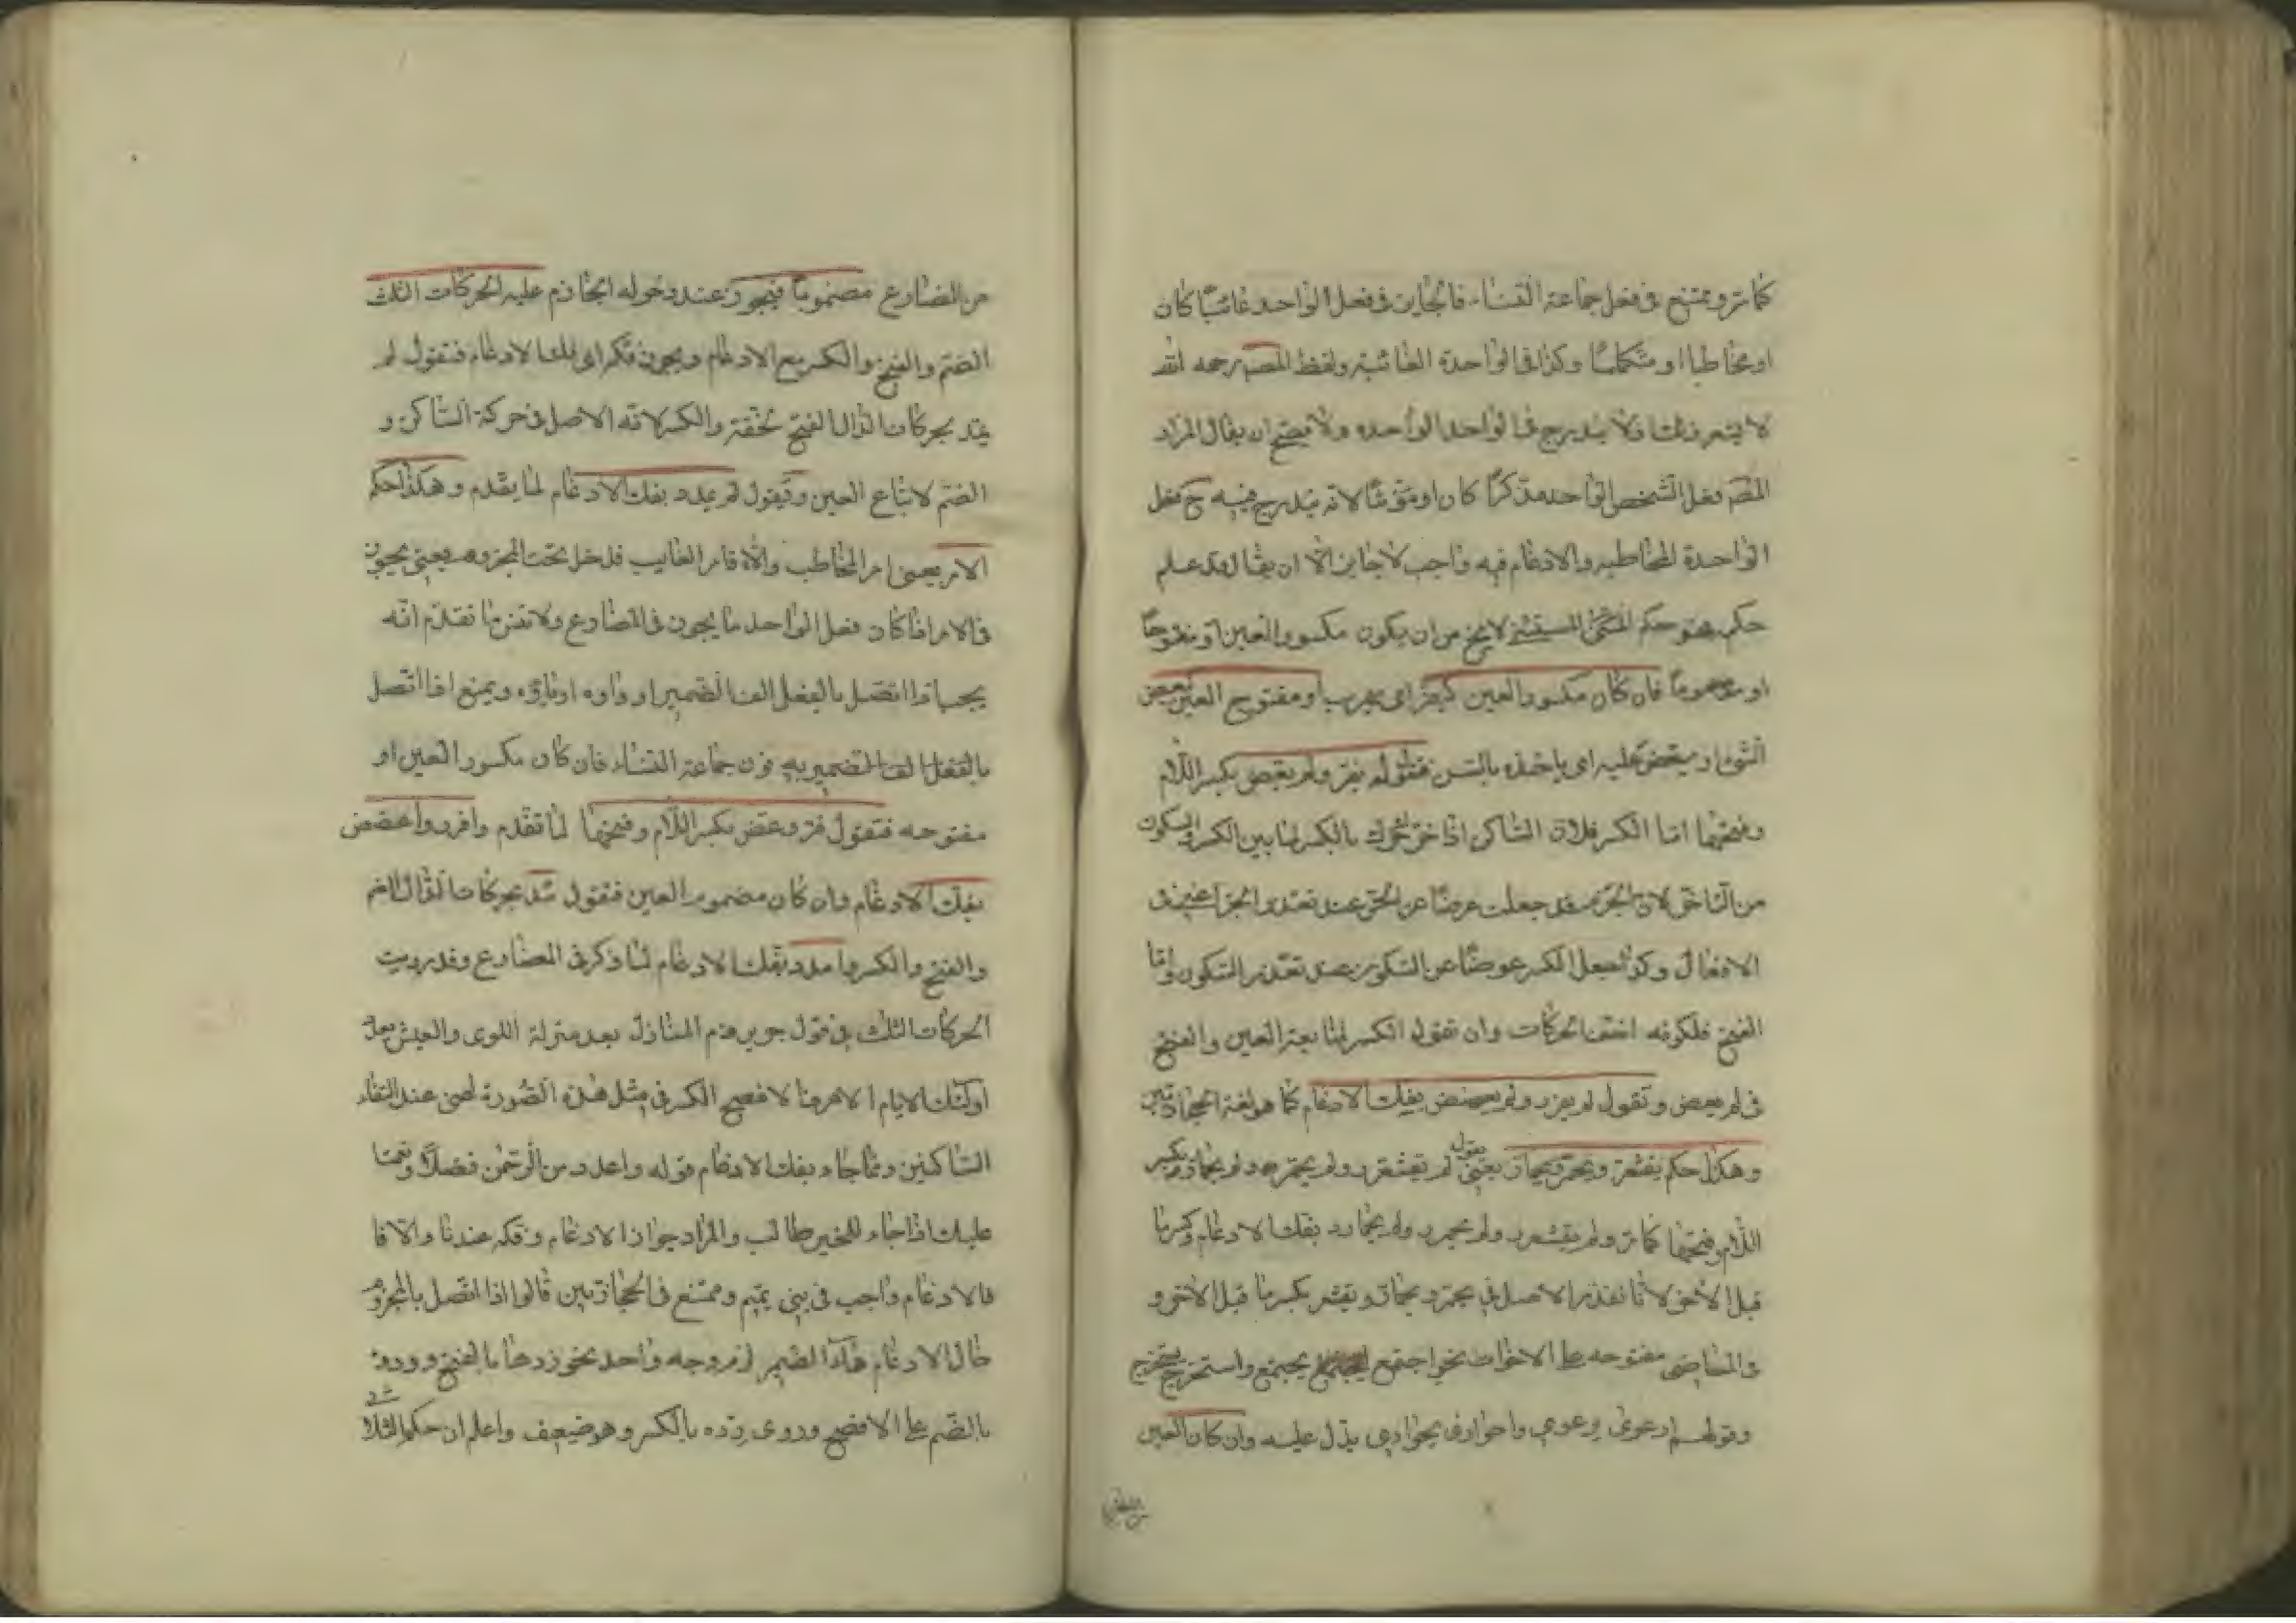 كما مر وممتنع فى فعل جماعة النساء فالجايز فى فعل الواحد غائبًا كان
او مخاطبا او متكلمًا وكذا فى الواحدة الغائبة ولفظ المص رحمه الله
لا يشعر بذلك ولا يندرج فى الواحد الواحدة ولا يصح ان يقال المراد
المص فعل الشخص الواحد مذكرًا كان او مؤنثًا لانه يندرج فيه ح فعل
الواحدة المخاطبه والادغام فيه واجب لا جايز الا ان يقال قد علم
حكمه فهو حكم المستثنى لا يخ من ان يكون مكسور العين او مفتوحًا
او مضمومًا فان كان مكسور العين كيفر اى يهرب او مفتوح العين كيعض
الشئ او يعض عليه اى ياخذه بالسن فتقول لم يفر ولم يعض بكسر اللام
وفتحها اما الكسر فلان الساكن اذا حرك حرك بالكسر لما بين الكسر والسكون
من التاخى لان الجر قد جعلت عوضًا عن الجزم عند تعذر الجزم اعنى فى
الافعال وكذا جعل الكسر عوضًا عن السكون عند تعذر السكون واما
الفتح فلكونه اخف الحركات وان تقول الكسر لمتابعة العين والفتح
فى لم يعض وتقول لم يفرر ولم يعضض بفك الادغام كما هو لغة الحجازيين
وهكذا حكم يقشعر ويحمر ويحمار يعنى تقول لم يقشعر ولم يحمر ولم يحمار بكسر
اللام وفتحها كما مر ولم يقشعرر ولم يحمرر ولم يحمارر بفك الادغام وكسر ما
قبل الاخر لانا نقدر الاصل فى يحمر ويحمار ويقشعر بكسر ما قبل الاخر و
فى الماضى مفتوحه على الاخوات نحو اجتمع يجتمع واستخرج يستخرج
وقولهم ارعوى يرعوى واحواوى يحواوى يدل عليه وان كان العين
من المضارع
من المضارع مضمومًا فيجوز عند دخول الجازم عليه الحركات الثلث
الضم والفتح والكسر مع الادغام ويجوز فكه اى فك الادغام فتقول لم
يمد بحركات الدال الفتح لخفته والكسر لانه الاصل فى حركة الساكن و
الضم لاتباع العين وتقول لم يمدد بفك الادغام لما يقدم وهكذا حكم
الامر يعنى امر المخاطب والا فامر الغايب قد دخل تحت المجزوم يعنى يجوز
فى الامر اذا كان فعل الواحد ما يجوز فى المضارع ولا تنس ما تقدم انه
يجب اذا اتصل بالفعل الف الضمير او واوه او ياؤه ويمنع اذا اتصل
بالفعل الف الضمير به نون جماعة النساء فان كان مكسور العين او
مفتوحه فتقول فر وعض بكسر اللام وفتحها لما تقدم وافرر واعضض
بفك الادغام وان كان مضموم العين فتقول مد بحركات الدال الضم
والفتح والكسر وامدد بفك الادغام لما ذكر فى المضارع وقد رويت
الحركات الثلث فى قول جرير ذم المنازل بعد منزلة اللوى والعيش بعد
اولئك الايام الا مر منا لا فصيح الكسر فى مثل هذه الصورة لضمن عند التقاء
الساكنين ومما جاء بفك الادغام قوله واعدد من الرحمن فضلًا ونعمة
عليك اذا جاء للخير طالب والمراد جواز الادغام وفكه عندنا والا فا
فالادغام واجب فى بنى تميم وممتنع فى الحجازيين قالوا اذا اتصل بالمجزوم
حال الادغام هاء الضمير لزم وجه واحد نحو ردها بالفتح ورده
بالضم على الافصح وروى رده بالكسر وهو ضعيف واعلم ان حكم الثلا